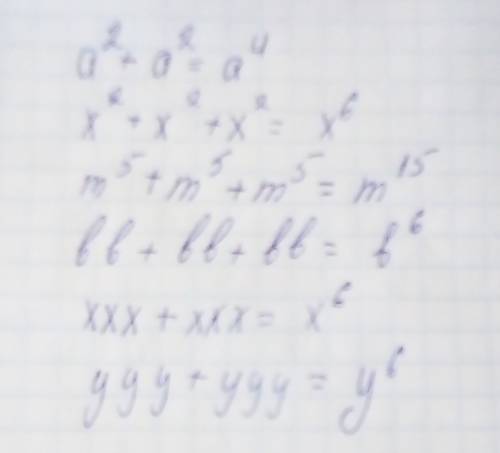 a² + a² = a⁴
x² + x² + x² = x⁶
m⁵ + m⁵ + m⁵ = m¹⁵
вв + вв + вв = в⁶
xxx + xxx = x⁶
yyy + yyy = y⁶